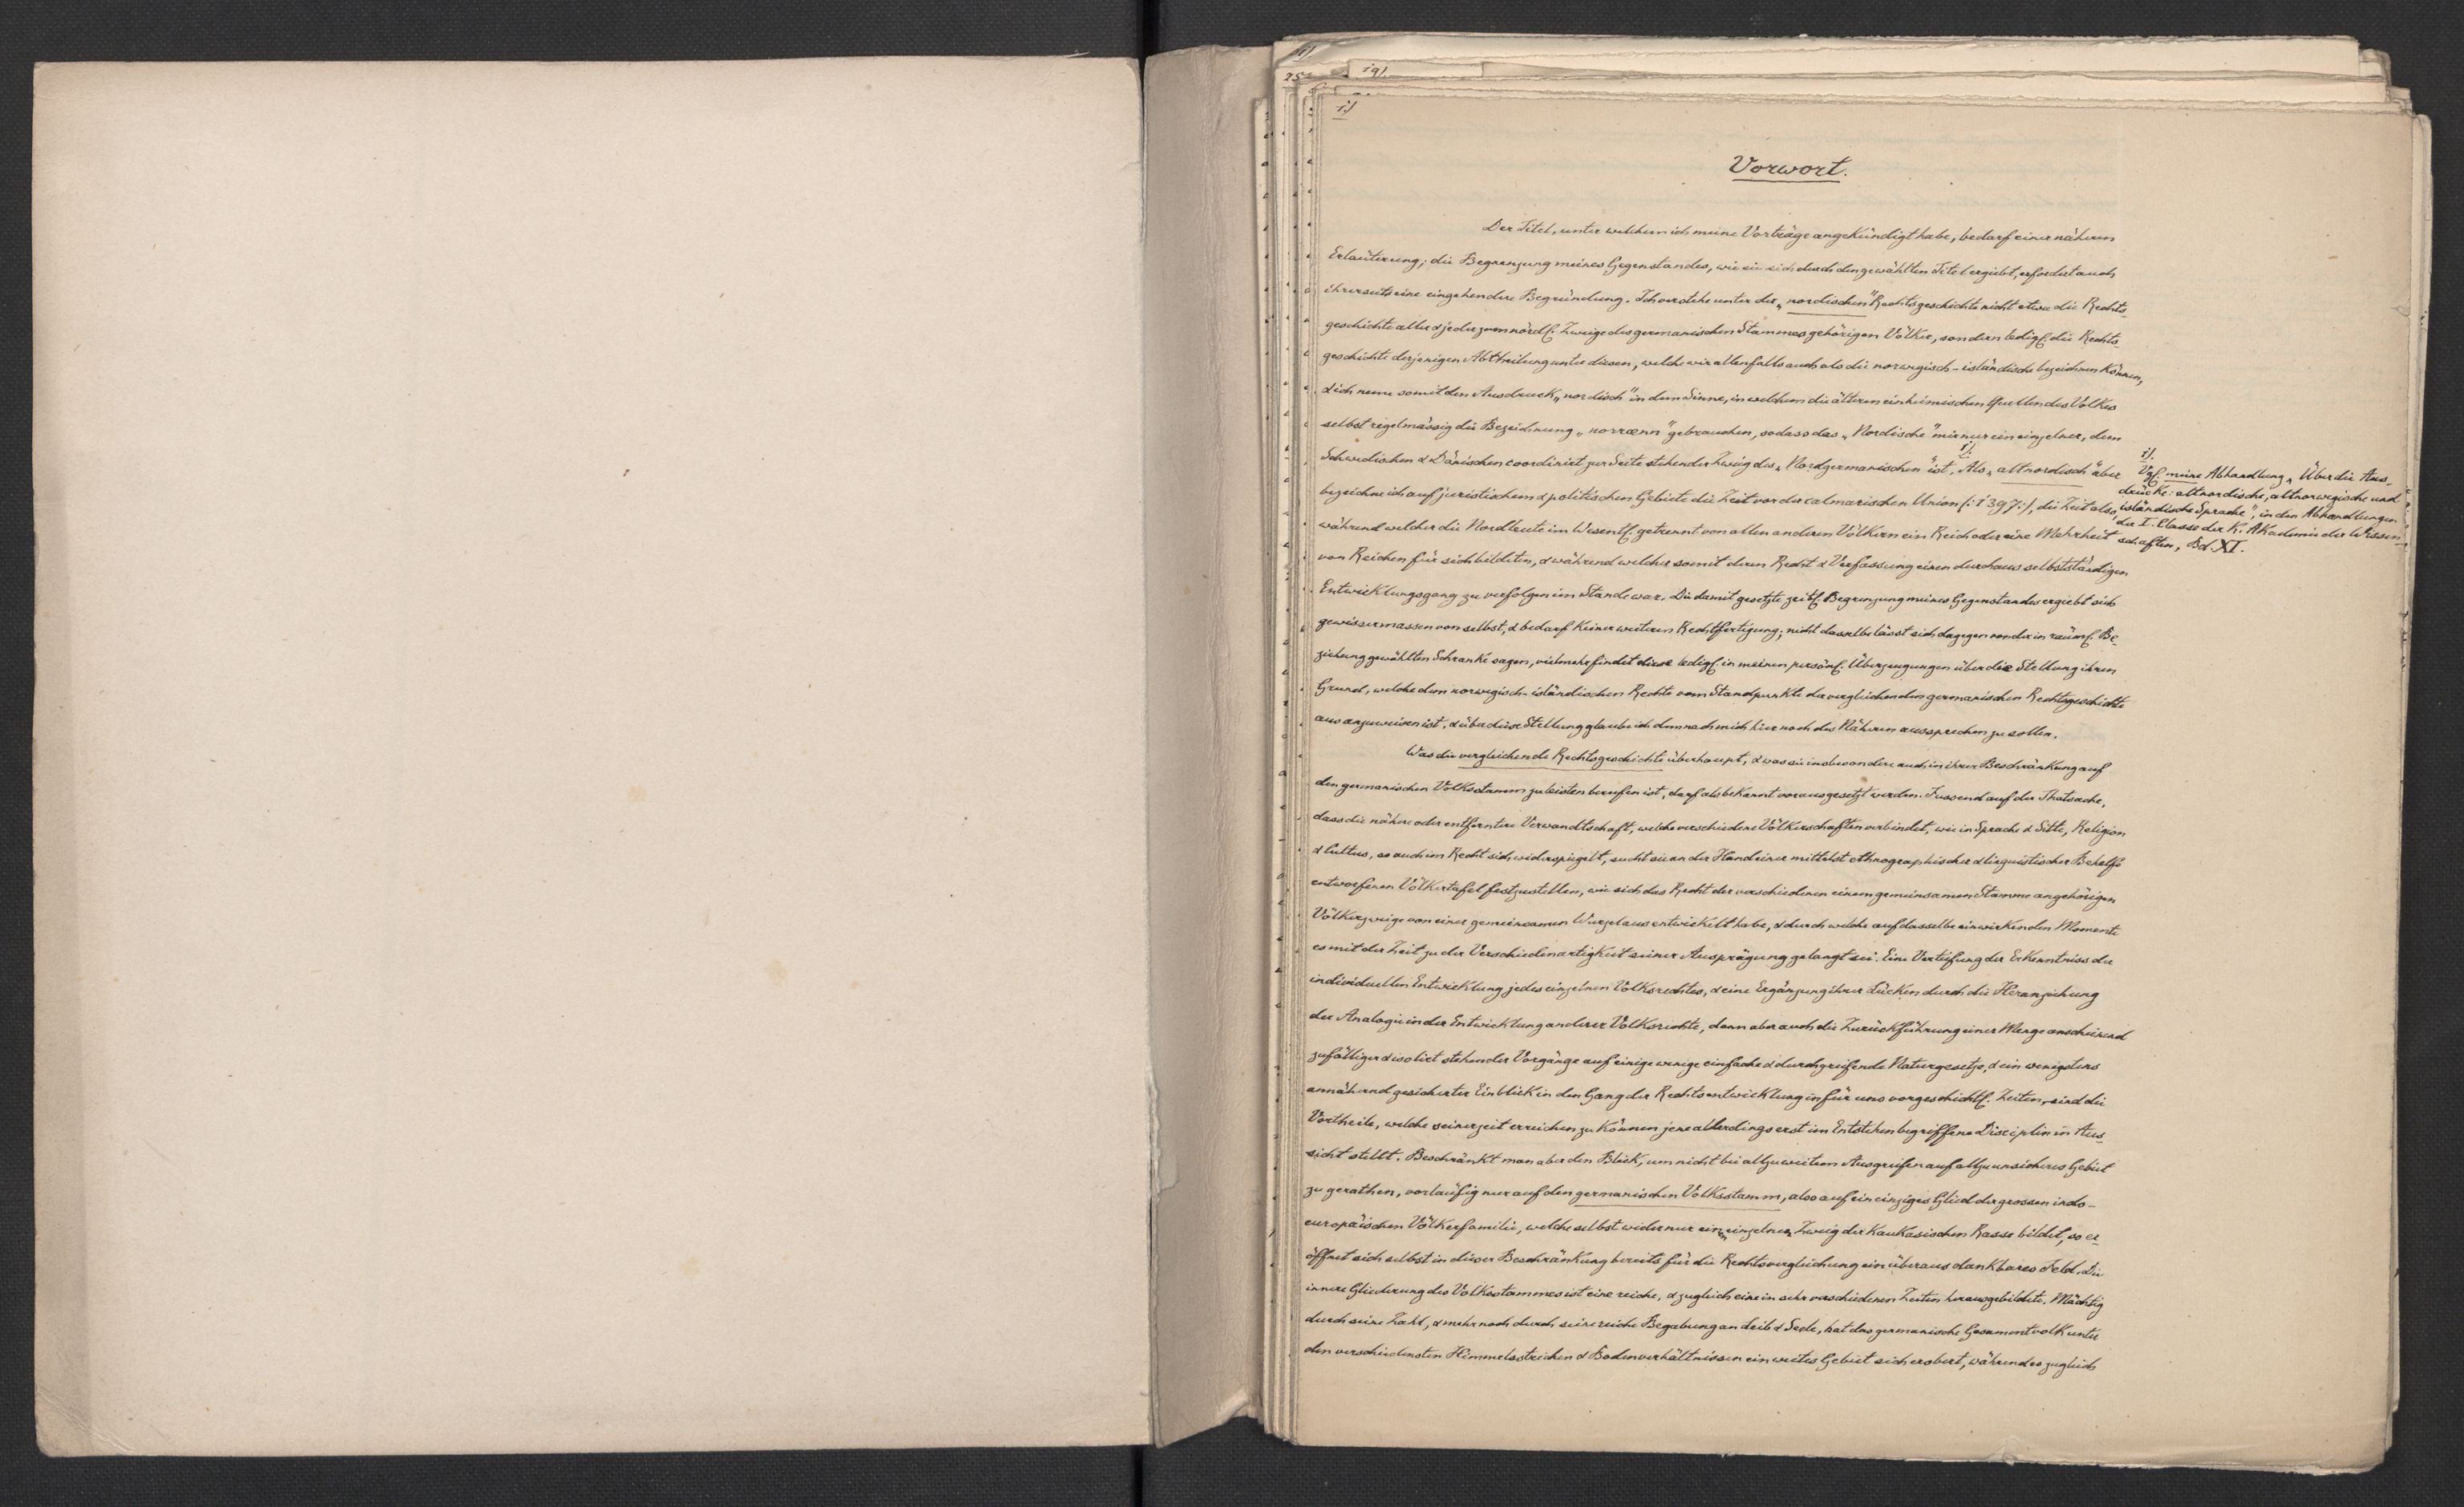 1)
19)
75
1)
Vorwort.
Der Titel, unter welchem ich meine Vorträge angekündigt habe, bedarf einer näheren
Erläuterung; die Begrenzung meines Gegenstandes, wie sie sich durch den gewählten Titel ergiebt, erfordert auch
ihrerseits eine eingehendere Begründung. Ich verstehe unter der „nordischen“ Rechtsgeschichte nicht etwa die Rechts-
geschichte aller & jeder zum nördl. Zweige des germanischen Stammes gehörigen Völker, sondern ledigl. die Rechts-
geschichte derjenigen Abtheilung unter diesen, welche wir allenfalls auch als die norwegisch-isländische bezeichnen können,
& ich neme somit den Ausdruck „nordisch“ in dem Sinne, in welchem die älteren einheimischen Quellen des Volkes
selbst regelmässig die Bezeichnung „norrœnn“ gebrauchen, sodass das „Nordische“ mir nur ein einzelner, dem
Schwedischen & Dänischen coordinirt zur Seite stehender Zweig des „Nordgermanischen“ ist. 1) Als „altnordisch“ aber
bezeichne ich auf juristischem & politischem Gebiete die Zeit vor der calmarischen Union (: 1397 :), die Zeit also,
während welcher die Nordleute im Wesentl. getrennt von allen anderen Völkern ein Reich oder eine Mehrheit
von Reichen für sich bildeten, & während welcher somit deren Recht & Verfassung einen durchaus selbstständigen
Entwicklungsgang zu verfolgen im Stande war. Die damit gesetzte zeitl. Begrenzung meines Gegenstandes ergiebt sich
gewissermassen von selbst, & bedarf keiner weiteren Rechtfertigung; nicht dasselbe lässt sich dagegen von der in räuml. Be-
ziehung gewählten Schranke sagen, vielmehr findet diese ledigl. in meinen persönl. Überzeugungen über die Stellung ihren
Grund, welche dem norwegisch-isländischen Rechte vom Standpunkte der vergleichenden germanischen Rechtsgeschichte
aus anzuweisen ist, & über diese Stellung glaube ich demnach mich hier noch des Näheren aussprechen zu sollen.
Was die vergleichende Rechtsgeschichte überhaupt, & was sie insbesondere auch in ihrer Beschränkung auf
den germanischen Volksstamm zu leisten berufen ist, darf als bekannt vorausgesetzt werden. Fussend auf der Thatsache,
dass die nähere oder entferntere Verwandtschaft, welche verschiedene Völkerschaften verbindet, wie in Sprache & Sitte, Religion
& Cultus, so auch im Recht sich widerspiegelt, sucht sie an der Hand einer mittelst ethnographischer & linguistischer Behelfe
entworfenen Völkertafel festzustellen, wie sich das Recht der verschiedenen einem gemeinsamen Stamme angehörigen
Völkerzweige von einer gemeinsamen Wurzel aus entwickelt habe, & durch welche auf dasselbe einwirkenden Momente
es mit der Zeit zu der Verschiedenartigkeit seiner Ausprägung gelangt sei. Eine Vertiefung der Erkenntniss der
individuellen Entwicklung jedes einzelnen Volksrechtes, & eine Ergänzung ihrer Lücken durch die Heranziehung
der Analogie in der Entwicklung anderer Volksrechte, dann aber auch die Zurückführung einer Menge anscheinend
zufälliger & isolirt stehender Vorgänge auf einige wenige einfache & durchgreifende Naturgesetze, & ein wenigstens
annähernd gesicherter Einblick in den Gang der Rechtsentwicklung in für uns vorgeschichtl. Zeiten, sind die
Vortheile, welche seinerzeit erreichen zu können jene allerdings erst im Entstehen begriffene Disciplin in Aus-
sicht stellt. Beschränkt man aber den Blick, um nicht bei allzu weitem Ausgreifen auf allzu unsicheres Gebiet
zu gerathen, vorläufig nur auf den germanischen Volksstamm, also auf ein einziges Glied der grossen indo-
europäischen Völkerfamilie, welche selbst wider nur einen einzelnen Zweig der kaukasischen Rasse bildet, so er-
öffnet sich selbst in dieser Beschränkung bereits für die Rechtsvergleichung ein überaus dankbares Feld. Die
innere Gliederung des Volksstammes ist eine reiche, & zugleich eine in sehr verschiedenen Zeiten herausgebildete. Mächtig
durch seine Zahl, & mehr noch durch seine reiche Begabung an Leib & Seele, hat das germanische Gesammtvolk unter
den verschiedensten Himmelsstrichen & Bodenverhältnissen ein weites Gebiet sich erobert, während es zugleich
1). Vgl. meine Abhandlung „Über die Aus-
drücke: altnordische, altnorwegische und
isländische Sprache“, in den Abhandlungen
der I. Classe der K. Akademie der Wissen-
schaften, Bd. XI.